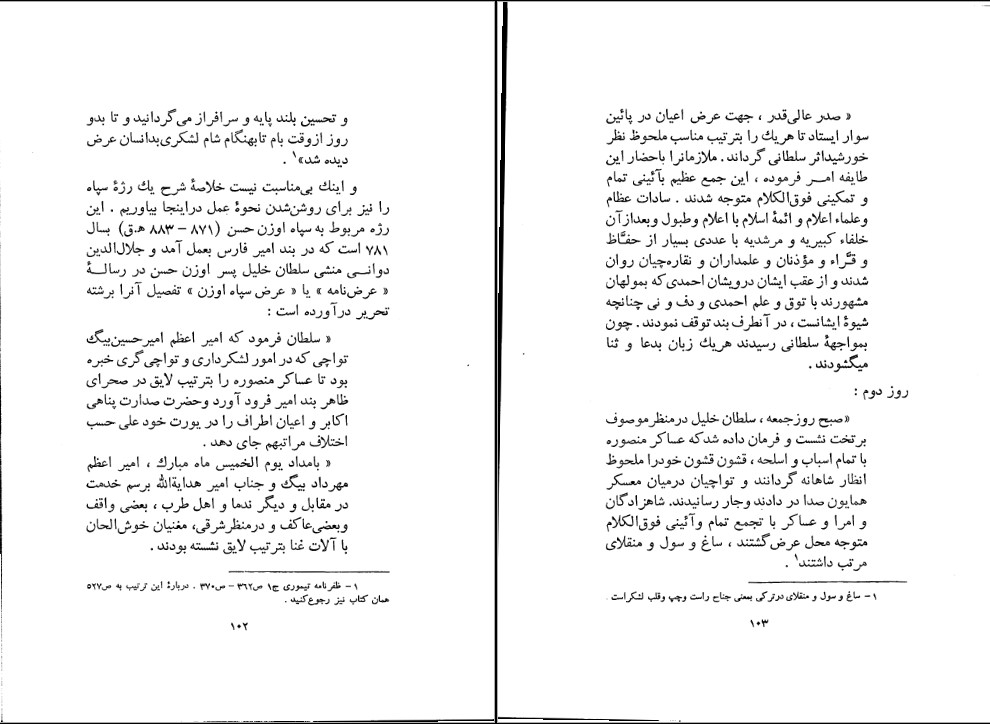 و تحسین بلند پایه و سرافراز می‌گردانید و تا بدو
روز ازوقت بام تابهنگام شام لشکری‌بدانسان عرض
دیده شد»۱ .
و اینك بی‌مناسبت نیست خلاصهٔ شرح یك رژهٔ سپاه
را نیز برای روشن‌شدن نحوهٔ عمل دراینجا بیاوریم . این
رژه مربوط به سپاه اوزن حسن (۸۷۱ – ۸۸۳ ه.ق) بسال
۷۸۱ است که در بند امیر فارس بعمل آمد و جلال‌الدین
دوانی منشی سلطان خلیل پسر اوزن حسن در رسالهٔ
« عرض‌نامه » یا « عرض سپاه اوزن » تفصیل آنرا برشته
تحریر درآورده است :
« سلطان فرمود که امیر اعظم امیرحسین‌بیگ
تواچی که در امور لشکرداری و تواچی‌گری خبره
بود تا عساکر منصوره را بترتیب لایق در صحرای
ظاهر بند امیر فرود آورد وحضرت صدارت پناهی
اکابر و اعیان اطراف را در یورت خود علی حسب
اختلاف مراتبهم جای دهد .
« بامداد یوم الخمیس ماه مبارك ، امیر اعظم
مهرداد بیگ و جناب امیر هدایةالله برسم خدمت
در مقابل و دیگر ندما و اهل طرب ، بعضی واقف
وبعضی‌عاکف و درمنظرشرقی، مغنیان خوش‌الحان
با آلات غنا بترتیب لایق نشسته بودند .
۱ – ظفرنامه تیموری ج۱ ص۳۶۲ – ص۳۷۰ . دربارهٔ این ترتیب به ص۵۲۷
همان کتاب نیز رجوع‌کنید .
۱۰۲
« صدر عالی‌قدر ، جهت عرض اعیان در پائین
سوار ایستاد تا هریك را بترتیب مناسب ملحوظ نظر
خورشیداثر سلطانی گرداند. ملازمانرا باحضار این
طایفه امر فرموده ، این جمع عظیم بآئینی تمام
و تمکینی فوق‌الکلام متوجه شدند . سادات عظام
وعلماء اعلام و ائمهٔ اسلام با اعلام وطبول وبعدازآن
خلفاء کبیریه و مرشدیه با عددی بسیار از حفّاظ
و قرّاء و مؤذنان و علمداران و نقاره‌چیان روان
شدند و از عقب ایشان درویشان احمدی‌که بمولهان
مشهورند با توق و علم احمدی و دف و نی چنانچه
شیوهٔ ایشانست ، در آنطرف بند توقف نمودند . چون
بمواجههٔ سلطانی رسیدند هریك زبان بدعا و ثنا
میگشودند .
روز دوم :
«صبح روزجمعه ، سلطان خلیل درمنظرموصوف
برتخت نشست و فرمان داده شدکه عساکر منصوره
با تمام اسباب و اسلحه ، قشون قشون خودرا ملحوظ
انظار شاهانه گردانند و تواچیان درمیان معسکر
همایون صدا در دادند وجار رسانیدند. شاهزادگان
و امرا و عساکر با تجمع تمام وآئینی فوق‌الکلام
متوجه محل عرض‌گشتند ، ساغ و سول و منقلای
مرتب داشتند۱ .
۱ – ساغ و سول و منقلای درترکی بمعنی جناح راست وچپ وقلب لشکراست .
۱۰۳